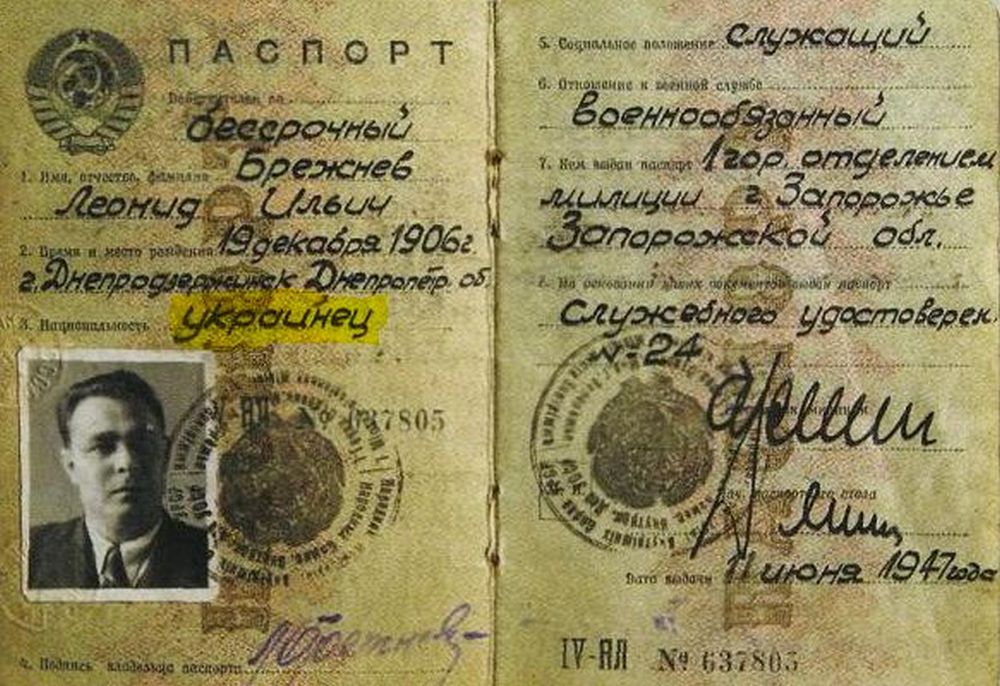 ПАСПОРТ
Действителен по
бессрочный
1. Имя, отчество, фамилия Брежнев
Леонид Ильич
2. Время и место рождения 19 декабря 1906г.
г. Днепродзержинск Днепропетр. об.
3. Национальность украинец
I-ЯЛ № 637805
4. Подпись владельца паспорта
5. Социальное положение служащий
6. Отношение к военной службе
военнообязанный
7. Кем выдан паспорт 1 гор. отделением
милиции г Запорожье
Запорожской обл.
8. На основании каких документов выдан паспорт
служебного удостоверен.
V-24
Нач. паспортного стола
Дата выдачи 11 июня 1947 года
IV-ЯЛ № 637805